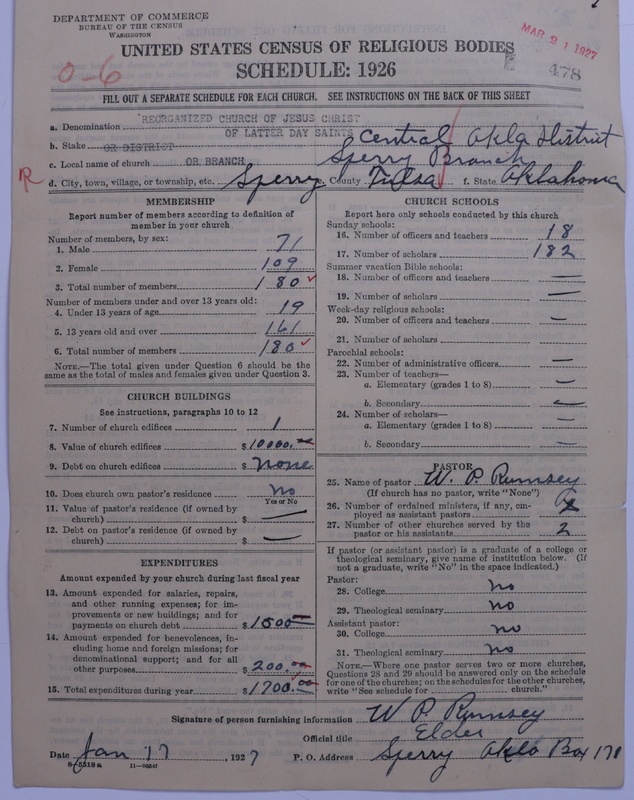 DEPARTMENT OF COMMERCE
BUREAU OF THE CENSUS
WASHINGTON
UNITED STATES CENSUS OF RELIGIOUS BODIES
MAR 21 1927
SCHEDULE: 1926
E 478
0-6
FILL OUT A SEPARATE SCHEDULE FOR EACH CHURCH. SEE INSTRUCTIONS ON THE BACK OF THIS SHEET
a. Denomination REORGANIZED CHURCH OF JESUS CHRIST
OF LATTER DAY SAINTS
b. Stake OR DISTRICT Central Okla District
c. Local name of church OR BRANCH Sperry Branch
R
d. City, town, village, or township, etc. Sperry County Tulsa f. State Oklahoma
MEMBERSHIP
Report number of members according to definition of
member in your church
Number of members, by sex:
1. Male 71
2. Female 109
3. Total number of members 180
Number of members under and over 13 years old:
4. Under 13 years of age 19
5. 13 years old and over 161
6. Total number of members 180
NOTE.—The total given under Question 6 should be the
same as the total of males and females given under Question 3.
CHURCH BUILDINGS
See instructions, paragraphs 10 to 12
7. Number of church edifices 1
8. Value of church edifices $10000.00
9. Debt on church edifices $none
10. Does church own pastor's residence No
Yes or No
11. Value of pastor's residence (if owned by
church) $ —
12. Debt on pastor's residence (if owned by
church) $ —
EXPENDITURES
Amount expended by your church during last fiscal year
13. Amount expended for salaries, repairs,
and other running expenses; for im-
provements or new buildings; and for
payments on church debt $1500
14. Amount expended for benevolences, in-
cluding home and foreign missions; for
denominational support; and for all
other purposes $200.00
15. Total expenditures during year $1700.00
CHURCH SCHOOLS
Report here only schools conducted by this church
Sunday schools:
16. Number of officers and teachers 18
17. Number of scholars 182
Summer vacation Bible schools:
18. Number of officers and teachers —
19. Number of scholars —
Week-day religious schools:
20. Number of officers and teachers —
21. Number of scholars
Parochial schools:
22. Number of administrative officers —
23. Number of teachers—
a. Elementary (grades 1 to 8) —
b. Secondary —
24. Number of scholars—
a. Elementary (grades 1 to 8) —
b. Secondary —
PASTOR
25. Name of pastor W. P. Rumsey
(If church has no pastor, write "None")
26. Number of ordained ministers, if any, em-
ployed as assistant pastors
27. Number of other churches served by the
pastor or his assistants 2
If pastor (or assistant pastor) is a graduate of a college or
theological seminary, give name of institution below. (If
not a graduate, write "No" in the space indicated.)
Pastor:
28. College no
29. Theological seminary no
Assistant pastor:
30. College no
31. Theological seminary no
NOTE.—Where one pastor serves two or more churches,
Questions 28 and 29 should be answered only on the schedule
for one of the churches; on the schedules for the other churches,
write "See schedule for church."
Signature of person furnishing information W P Rumsey
Official title Elder
Date Jan 17, 1927 P. O. Address Sperry Okla Box 178
8-5518 a